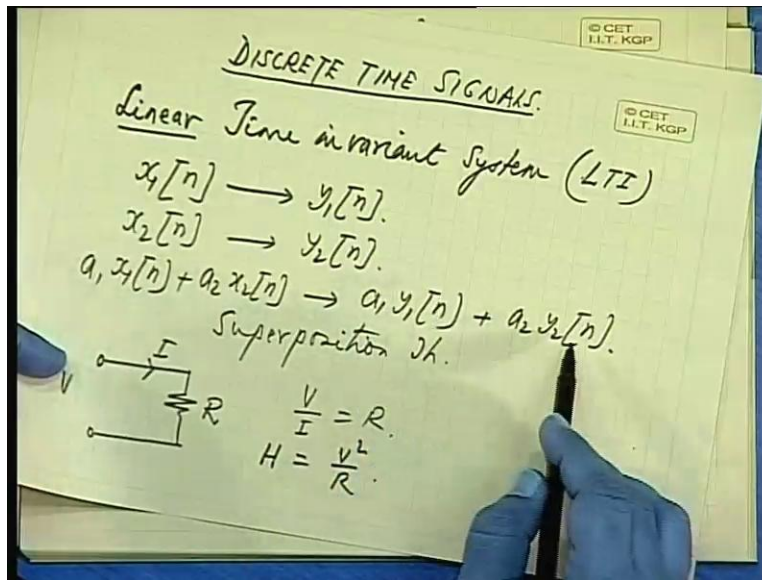 © CET
I.I.T. KGP
DISCRETE TIME SIGNALS.
© CET
I.I.T. KGP
Linear Time invariant System (LTI)
x1[n] → y1[n].
x2[n] → y2[n].
a1 x1[n] + a2 x2[n] → a1 y1[n] + a2 y2[n].
Superposition Th.
I
V
R
V/I = R.
H = V²/R.